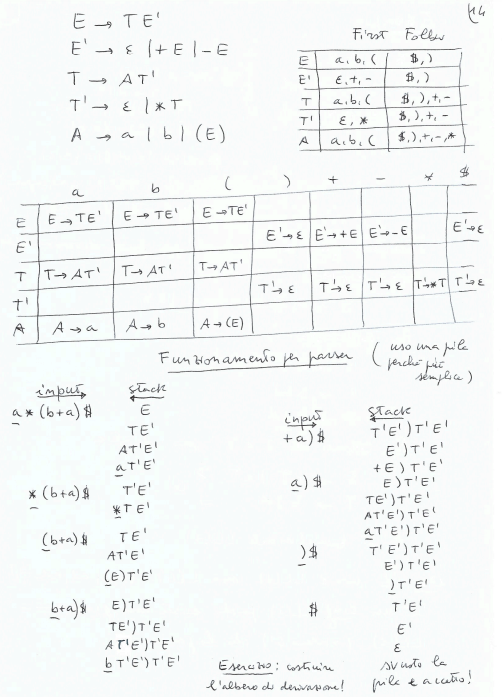 14
E → TE'
E' → ε | +E | -E
T → AT'
T' → ε | *T
A → a | b | (E)
First Follow
E a, b, ( $, )
E' ε, +, - $, )
T a, b, ( $, ), +, -
T' ε, * $, ), +, -
A a, b, ( $, ), +, -, *
a b ( ) + - * $
E E → TE' E → TE' E → TE'
E' E' → ε E' → +E E' → -E E' → ε
T T → AT' T → AT' T → AT'
T' T' → ε T' → ε T' → ε T' → *T T' → ε
A A → a A → b A → (E)
Funzionamento per parser (uso una pila
perché più
semplice)
input stack
a * (b+a)$ E
TE'
AT'E'
aT'E'
* (b+a)$ T'E'
*TE'
(b+a)$ TE'
AT'E'
(E)T'E'
b+a)$ E)T'E'
TE')T'E'
AT'E')T'E'
bT'E')T'E'
input stack
+a)$ T'E')T'E'
E')T'E'
+E)T'E'
a)$ E)T'E'
TE')T'E'
AT'E')T'E'
aT'E')T'E'
)$ T'E')T'E'
E')T'E'
)T'E'
$ T'E'
E'
ε
Esercizio: costruire
l'albero di derivazione!
svuoto la
pila e accetto!